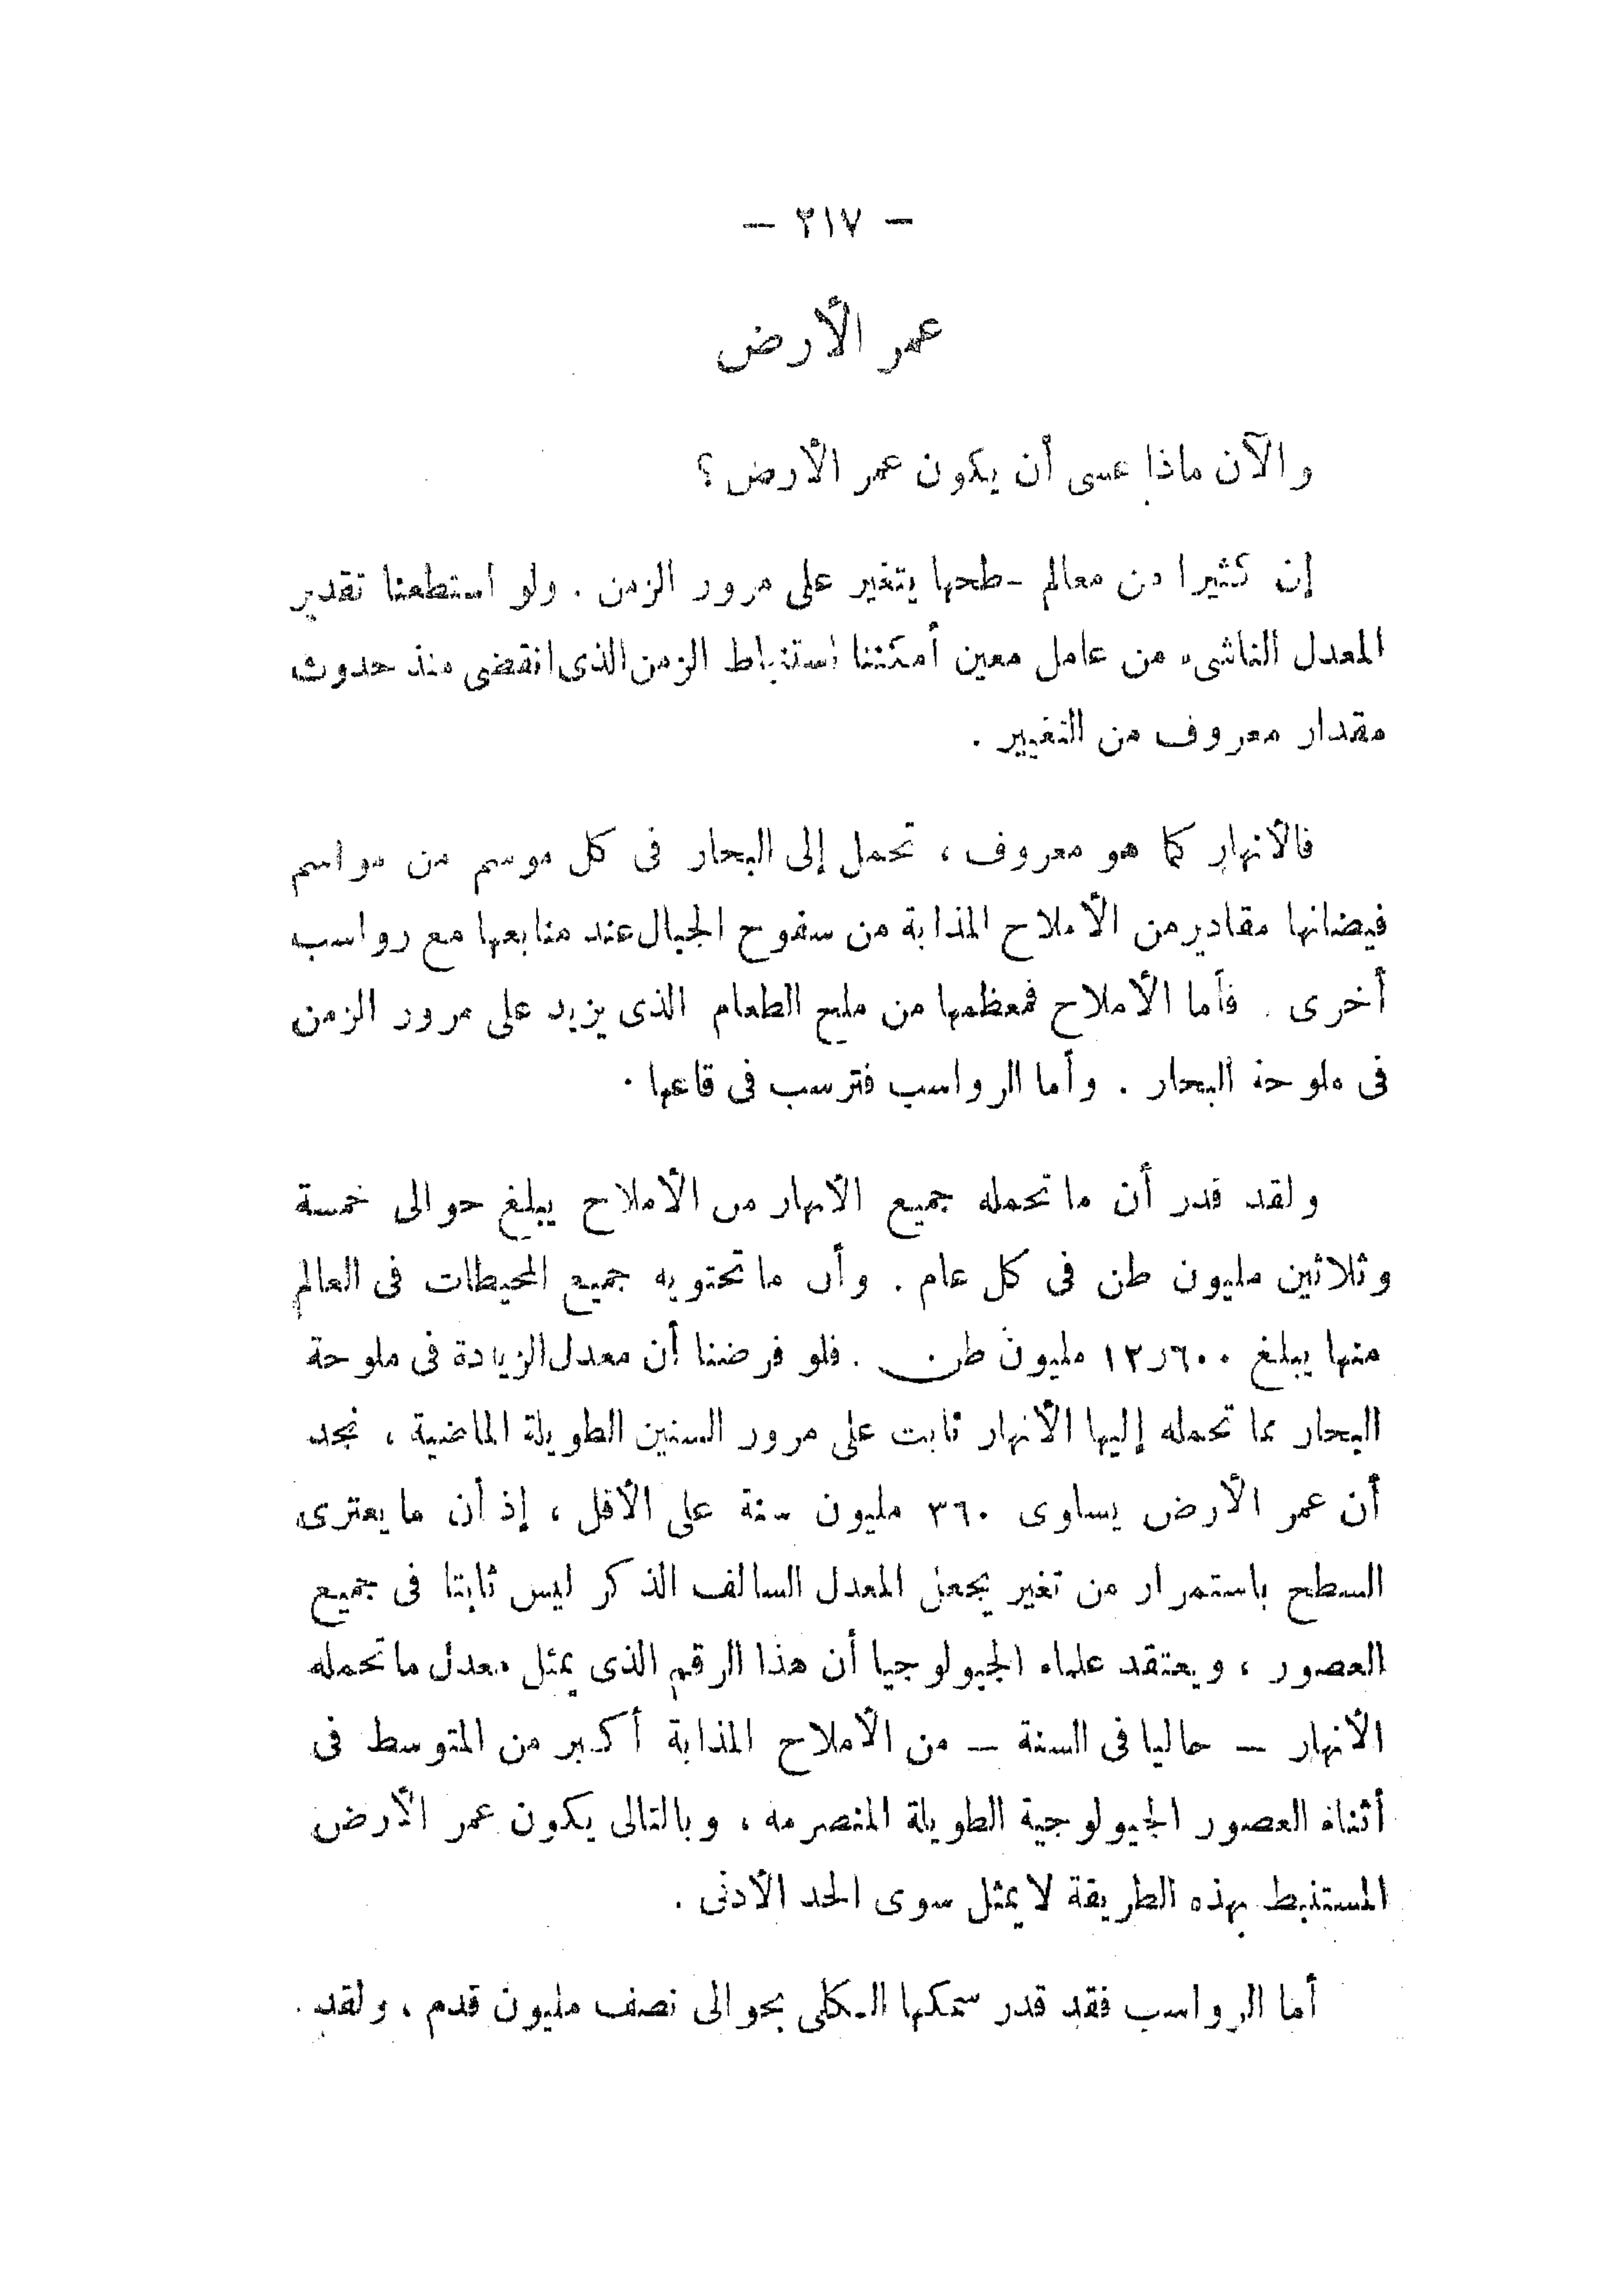 — ٢١٧ —
عمر الأرض
والآن ماذا عسى أن يكون عمر الأرض ؟
إن كثيرا من معالم سطحها يتغير على مرور الزمن . ولو استطعنا تقدير
المعدل الناشىء من عامل معين أمكننا استنباط الزمن الذى انقضى منذ حدوث
مقدار معروف من التغيير .
فالأنهار كما هو معروف ، تحمل إلى البحار فى كل موسم من مواسم
فيضانها مقادير من الأملاح المذابة من سفوح الجبال عند منابعها مع رواسب
أخرى . فأما الأملاح فمعظمها من ملح الطعام الذى يزيد على مرور الزمن
فى ملوحة البحار . وأما الرواسب فترسب فى قاعها .
ولقد قدر أن ما تحمله جميع الأنهار من الأملاح يبلغ حوالى خمسة
وثلاثين مليون طن فى كل عام . وأن ما تحتويه جميع المحيطات فى العالم
منها يبلغ ١٢ر٦٠٠ مليون طن . فلو فرضنا أن معدل الزيادة فى ملوحة
البحار عما تحمله إليها الأنهار ثابت على مرور السنين الطويلة الماضية ، نجد
أن عمر الأرض يساوى ٣٦٠ مليون سنة على الأقل ، إذ أن ما يعترى
السطح باستمرار من تغير يجعل المعدل السالف الذكر ليس ثابتا فى جميع
العصور ، ويعتقد علماء الجيولوجيا أن هذا الرقم الذى يمثل معدل ما تحمله
الأنهار — حاليا فى السنة — من الأملاح المذابة أكبر من المتوسط فى
أثناء العصور الجيولوجية الطويلة المنصرمه ، وبالتالى يكون عمر الأرض
المستنبط بهذه الطريقة لا يمثل سوى الحد الأدنى .
أما الرواسب فقد قدر سمكها الكلى بحوالى نصف مليون قدم ، ولقد